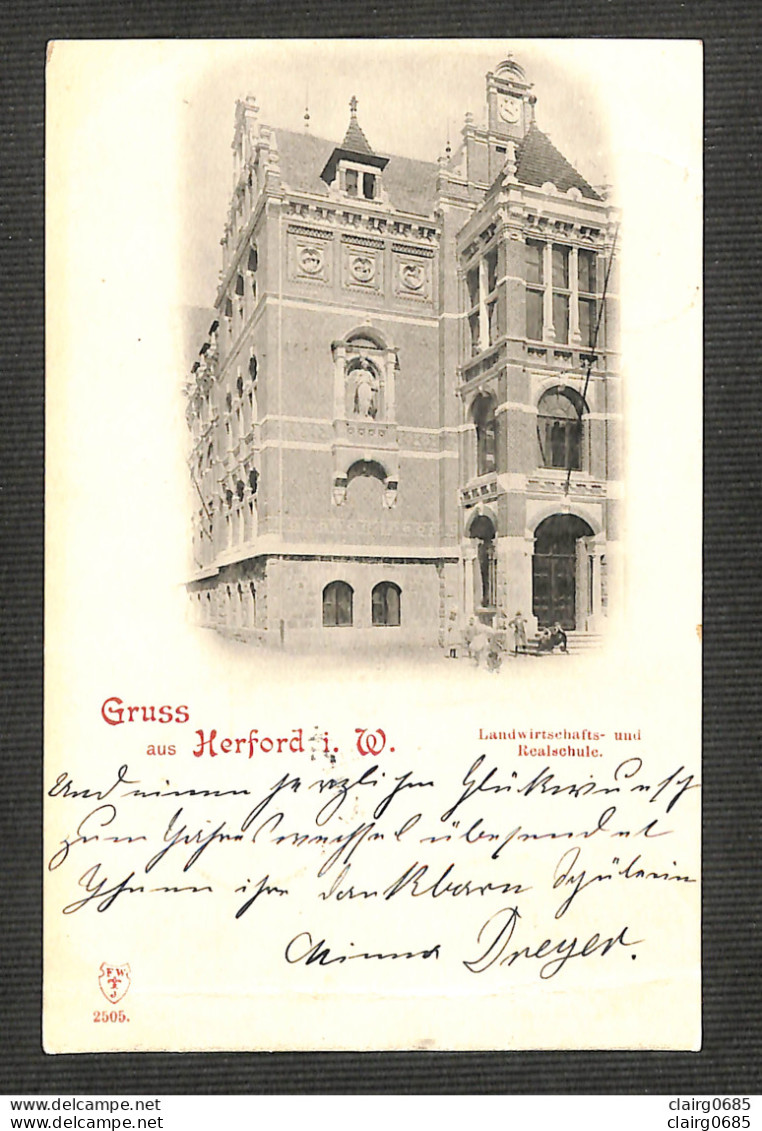 Gruss
aus Herford i. W.
Landwirtschafts- und
Realschule.
Und einen herzlichen Glückwunsch
zum Jahreswechsel übersendet
Ihnen ihre dankbare Schülerin
Minna Dreyer.
F W
J
2505.
© Delcampe
www.delcampe.net
clairg0685
clairg0685